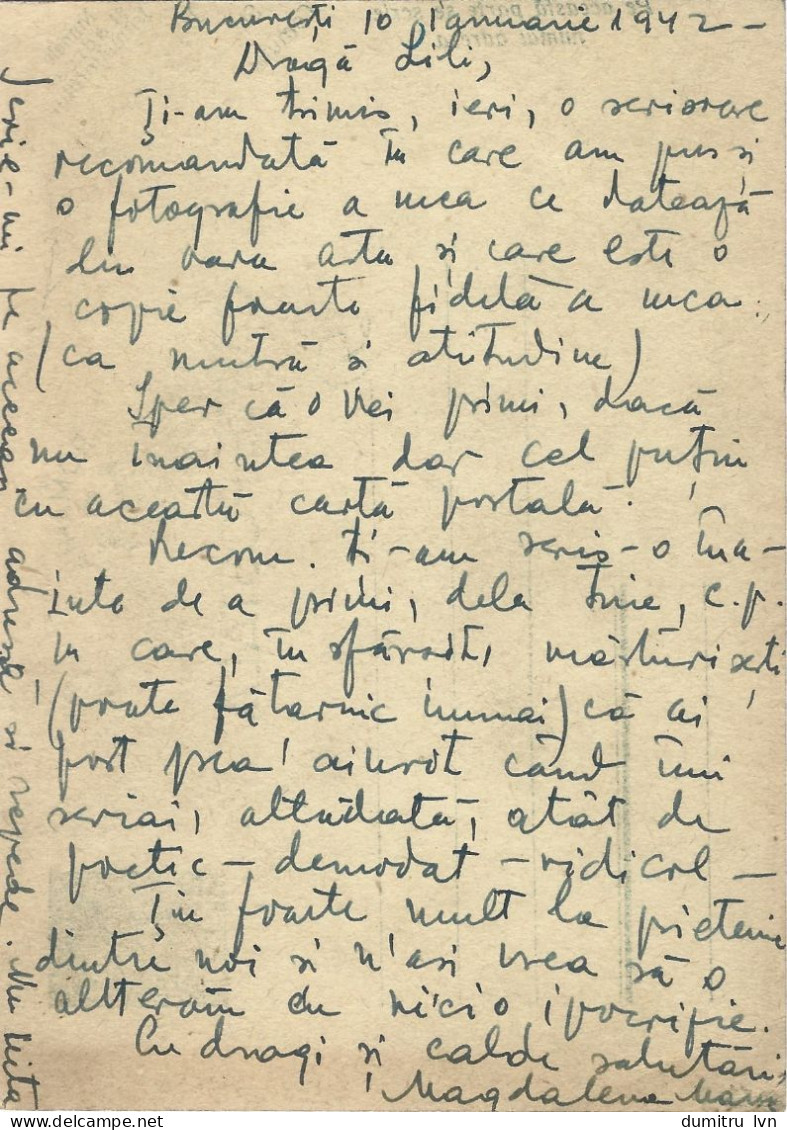 București 10 Ianuarie 1942 -
Dragă Lili,
Ți-am trimis, ieri, o scrisoare
recomandată în care am pus și
o fotografie a mea ce datează
din vara asta și care este o
copie foarte fidelă a mea.
(ca mutră și atitudine)
Sper că o vei primi, dacă
nu înaintea dar cel puțin
cu această cartă postală.
Recom. ți-am scris-o îna-
inte de a primi, dela tine, c.p.
în care, în sfârșit, mărturisești
(poate fățarnic numai) că ai
fost prea aiurit când îmi
scriai, altădată, atât de
poetic - demodat - ridicol -
Țin foarte mult la prietenia
dintre noi și n'ași vrea să o
alterăm cu nicio ipocrizie.
Cu dragi și calde salutări,
Magdalena
Scrie-mi pe aceeași adresă și repede. Nu uita
dumitru lvn